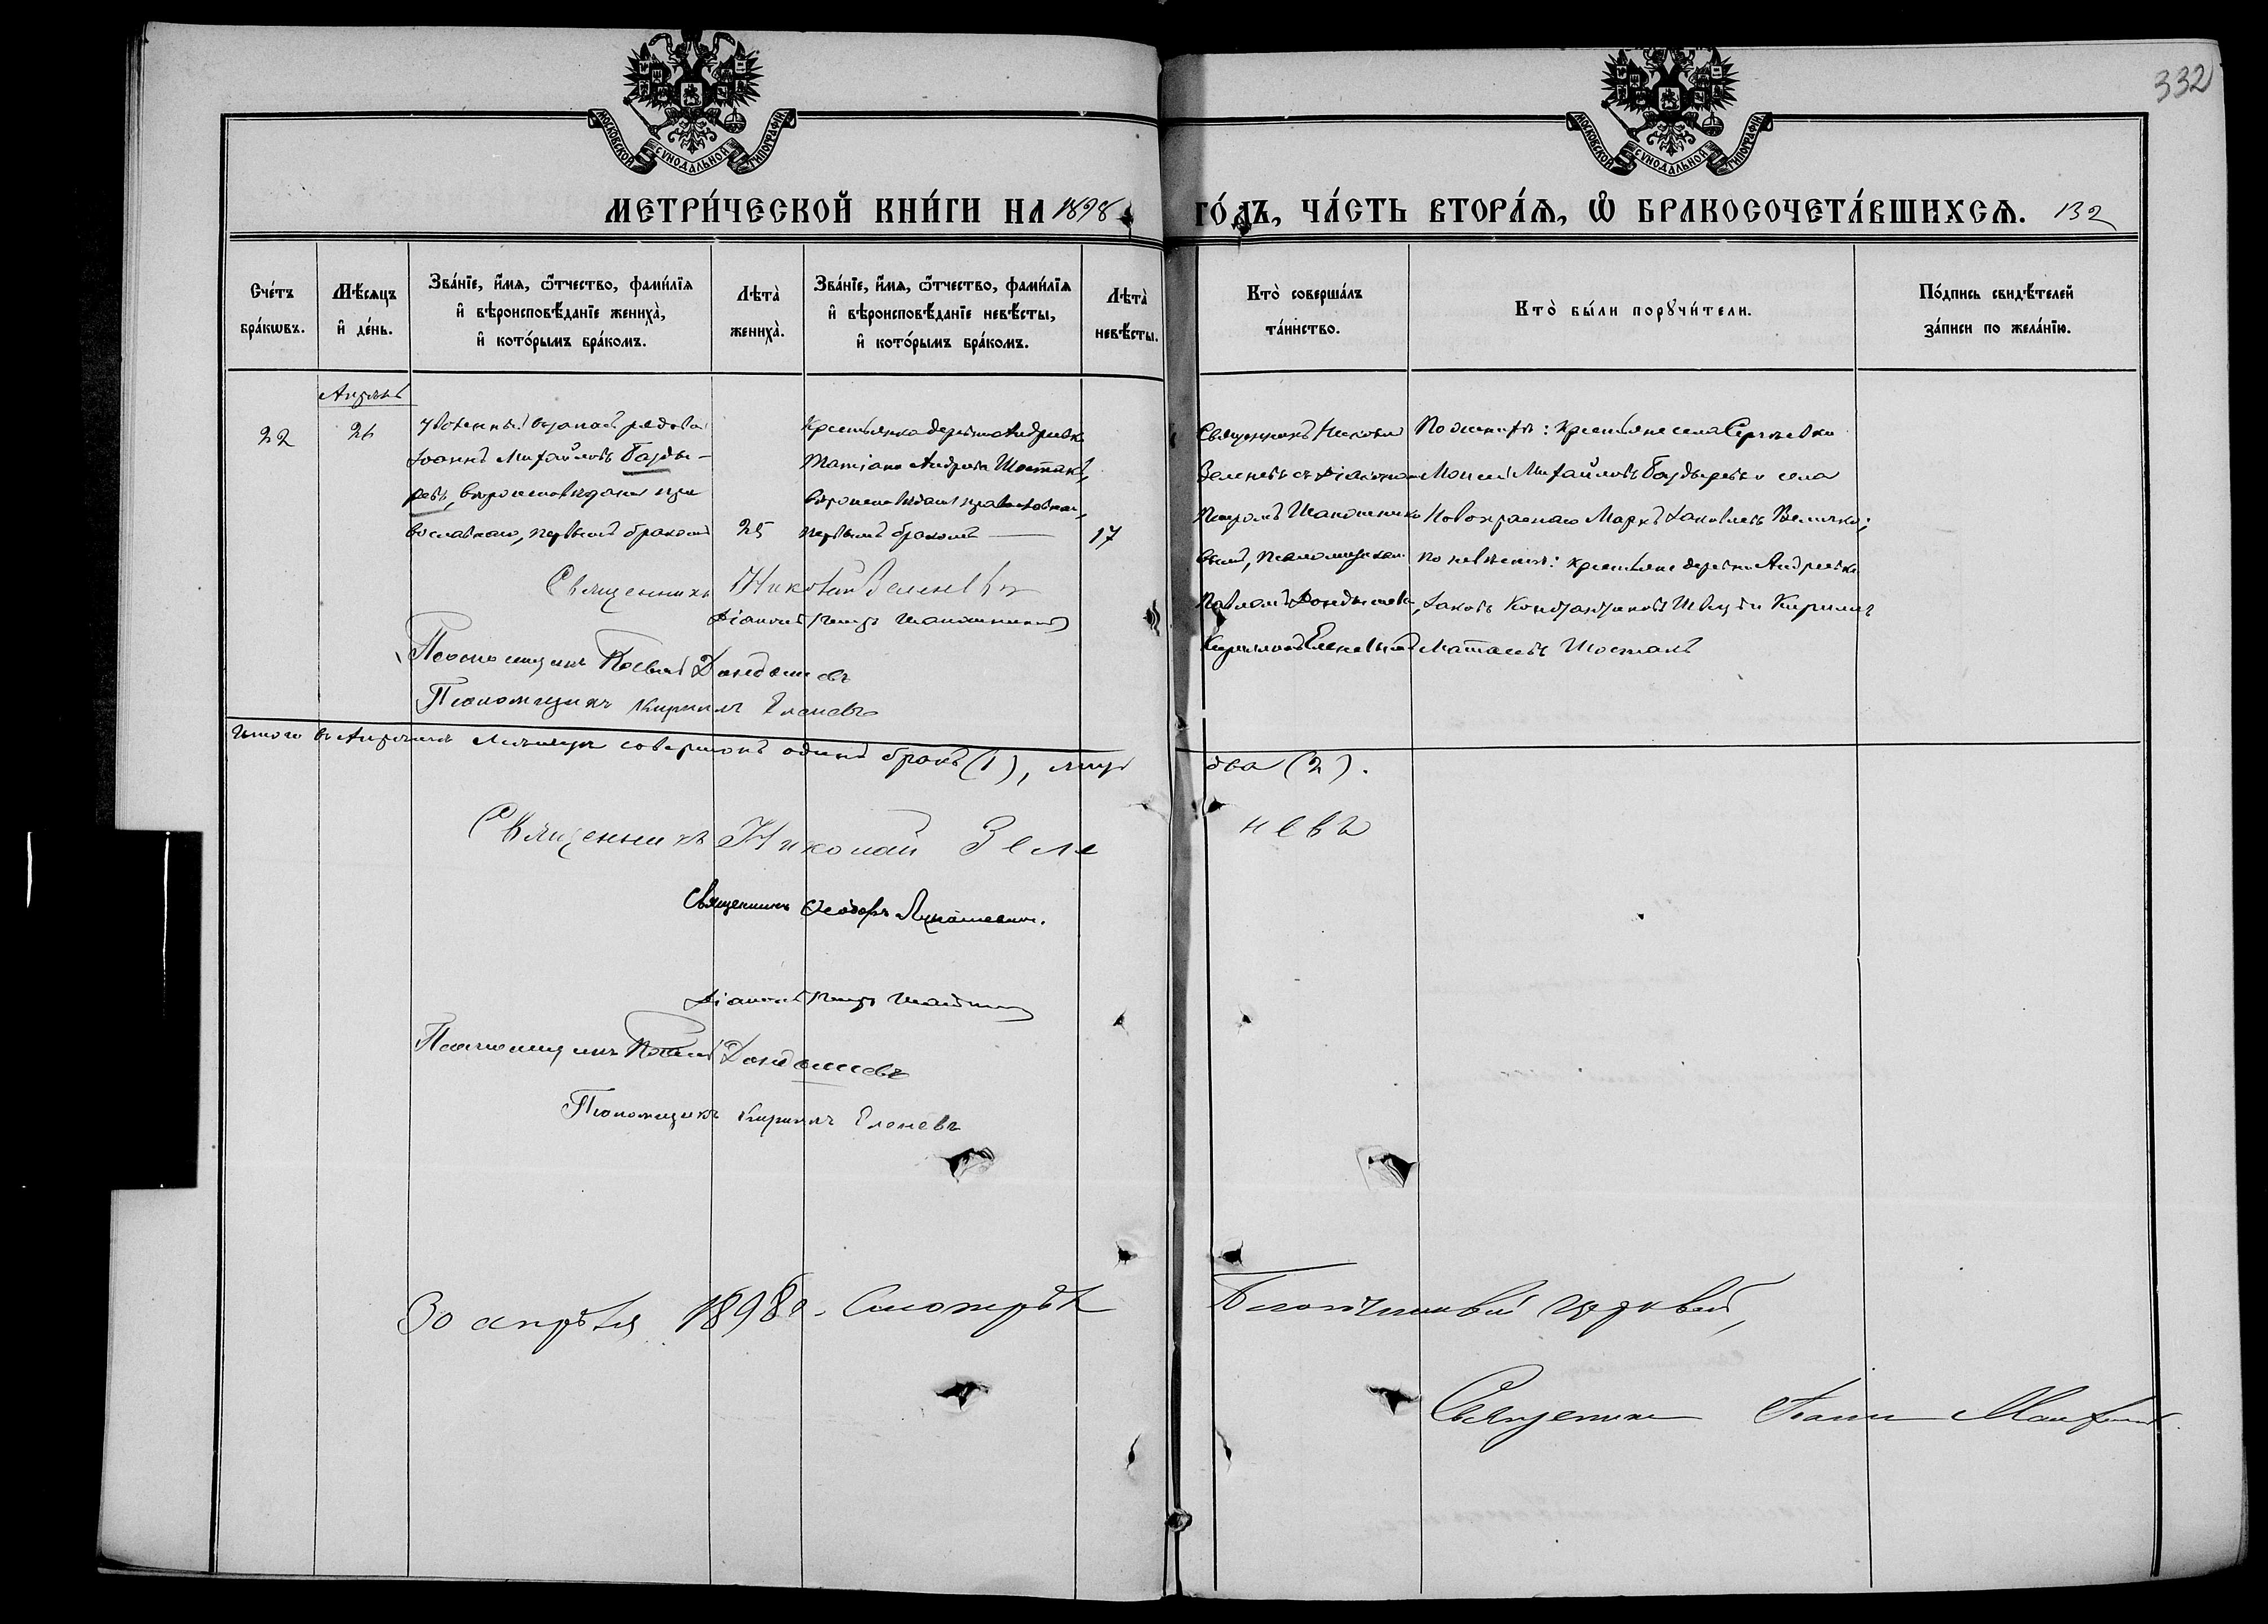 332
МОСКОВСКОЙ СУНОДАЛЬНОЙ ТИПОГРАФІИ
МОСКОВСКОЙ СУНОДАЛЬНОЙ ТИПОГРАФІИ
МЕТРИ́ЧЕСКОЙ КНИ́ГИ НА 1898
ГО́ДЪ, ЧА́СТЬ ВТОРА́Ѧ, Ѽ БРАКОСОЧЕТА́ВШИХСѦ. 132
Сче́тъ
бра́кѡвъ.
Мѣ́сяцъ
и҆ де́нь.
Зва́нїе, и҆́мѧ, ѻ҆́тчество, фами́лїѧ
и҆ вѣроисповѣ́данїе жениха̀,
и҆ кото́рымъ бра́комъ.
Лѣта̀
жениха̀.
Зва́нїе, и҆́мѧ, ѻ҆́тчество, фами́лїѧ
и҆ вѣроисповѣ́данїе невѣ́сты,
и҆ кото́рымъ бра́комъ.
Лѣта̀
невѣ́сты.
Кто̀ соверша́лъ
та́инство.
Кто̀ бы́ли порꙋчи́тели.
По́дпись свидѣ́телей
за́писи по жела́нїю.
Апрѣль
22
26
Уволенный въ запасъ рядовой
Іоаннъ Михайловъ Базды-
ревъ, вѣроисповѣданія пра
вославнаго, первымъ бракомъ
25
Крестьянка деревни Андреевки
Татіана Андреева Шостакъ,
вѣроисповѣданія православнаго,
первымъ бракомъ
17
Священникъ Николай
Зеленевъ съ діакономъ
Петромъ Шапошнико
вымъ, псаломщиками
Павломъ
Кирилломъ Еленевымъ
По женихѣ: крестьяне села Сергѣевки
Моисей Михайловъ Баздыревъ и села
Новокраснаго Маркъ Іаковлевъ Величко;
по невѣстѣ: крестьяне деревни Андреевки
Іаковъ Швецъ и Кириллъ
Шостакъ
Священникъ Николай Зеленевъ
Діаконъ Петръ Шапошниковъ
Псаломщикъ Павелъ
Псаломщикъ Кириллъ Еленевъ
Итого въ Апрѣлѣ мѣсяцѣ совершонъ одинъ бракъ (1), лицъ два (2).
Священникъ Николай Зеленевъ
Священникъ Ѳеодоръ Лукашевичъ.
Діаконъ Петръ
Псаломщикъ Павелъ
Псаломщикъ Кириллъ Еленевъ
30 апрѣля 1898 г. Смотрѣлъ Благочинный церквей,
Священникъ Іоаннъ